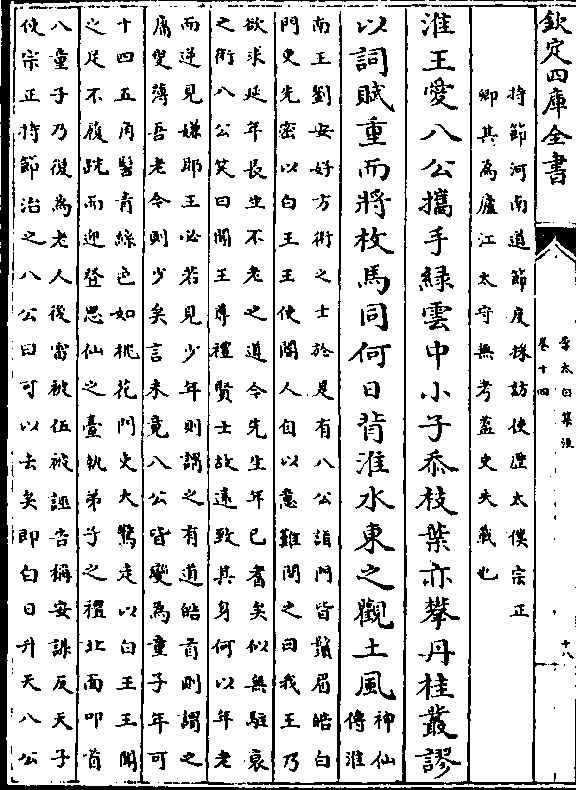 欽定四庫全書
李太白集注
卷十四
十八
持節河南道節度採訪使歴太僕宗正
卿其為廬江太守無考葢史失載也
淮王愛八公攜手緑雲中小子忝枝葉亦攀丹桂叢謬
以詞賦重而將枚馬同何日背淮水東之觀土風
神仙
傳淮
南王劉安好方術之士於是有八公詣門皆鬚眉皓白
門吏先密以白王王使閽人自以意難問之曰我王乃
欲求延年長生不老之道今先生年已耆矣似無駐衰
之術八公笑曰聞王尊禮賢士故遠致其身何以年老
而逆見嫌耶王必若見少年則謂之有道皓首則謂之
庸叟薄吾老今則少矣言未竟八公皆變為童子年可
十四五角髻青絲色如桃花門吏大驚走以白王王聞
之足不履跣而迎登思仙之臺執弟子之禮北面叩首
八童子乃復為老人後雷被伍被誣告稱安謀反天子
使宗正持節治之八公曰可以去矣即白日升天八公